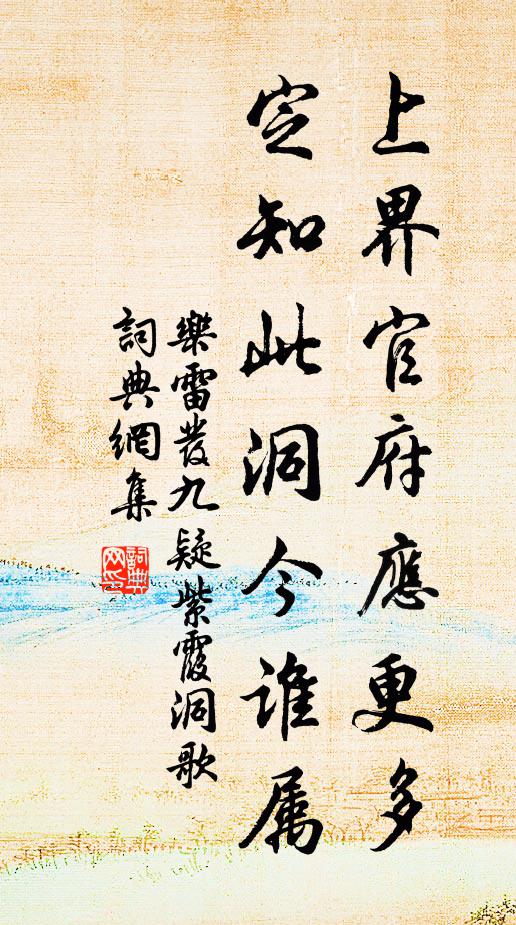 上界官府應更多
定知此洞今誰属
樂雷發九疑紫霞洞歌
詞典網集